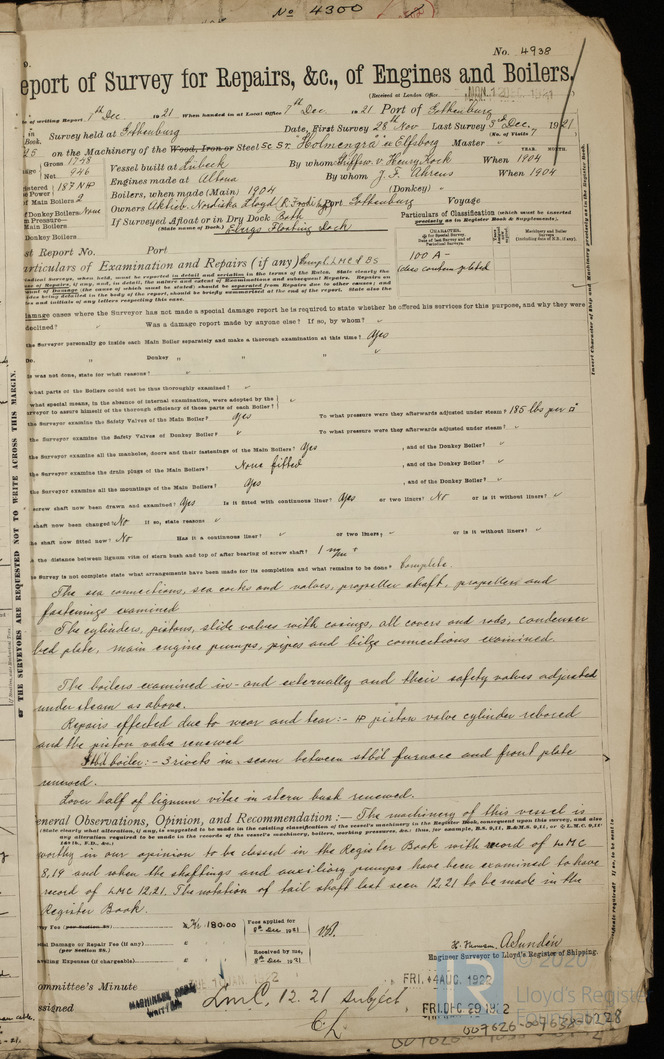 No 4300
No. 4938
eport of Survey for Repairs, &c., of Engines and Boilers.
(Received at London Office
of writing Report 7th Dec. 1921 When handed in at Local Office 7th Dec. 1921 Port of Gothenburg
Survey held at Gothenburg Date, First Survey 28th Nov Last Survey 3rd Dec. 1921
(No. of Visits 7
on the Machinery of the Wood, Iron or Steel Sc St. Holmengrå u Elfsborg Master
Gross 1758
Net 946
Vessel built at Lübeck By whom Schiffsw. v. Henry Koch When 1904
Engines made at Altona By whom J. F. Ahrens When 1904
187 NHP
Boilers, when made (Main) 1904 (Donkey) "
of Main Boilers 2
of Donkey Boilers None
Owners Aktieb. Nordiska Lloyd Port Gothenburg Voyage
If Surveyed Afloat or in Dry Dock Both
(State name of Dock.) Floating Dock
Particulars of Classification (which must be inserted
precisely as in Register Book & Supplements).
100 A -
st Report No. Port
articulars of Examination and Repairs (if any) Compl LMC & BS
damage cases where the Surveyor has not made a special damage report he is required to state whether he offered his services for this purpose, and why they were
declined? " Was a damage report made by anyone else? If so, by whom? "
the Surveyor personally go inside each Main Boiler separately and make a thorough examination at this time? Yes
Do. Donkey " " " "
is was not done, state for what reasons? "
what parts of the Boilers could not be thus thoroughly examined? "
what special means, in the absence of internal examination, were adopted by the
rveyor to assure himself of the thorough efficiency of those parts of each Boiler? "
the Surveyor examine the Safety Valves of the Main Boiler? Yes To what pressure were they afterwards adjusted under steam? 185 lbs per □
the Surveyor examine the Safety Valves of Donkey Boiler? " To what pressure were they afterwards adjusted under steam? "
the Surveyor examine all the manholes, doors and their fastenings of the Main Boilers? Yes , and of the Donkey Boiler? "
the Surveyor examine the drain plugs of the Main Boilers? None fitted , and of the Donkey Boiler? "
the Surveyor examine all the mountings of the Main Boilers? Yes , and of the Donkey Boiler? "
screw shaft now been drawn and examined? Yes Is it fitted with continuous liner? Yes or two liners? No or is it without liners? "
shaft now been changed? No If so, state reasons "
he shaft now fitted new? No Has it a continuous liner? " or two liners? " or is it without liners? "
the distance between lignum vitæ of stern bush and top of after bearing of screw shaft? 1 m/m
he Survey is not complete state what arrangements have been made for its completion and what remains to be done? Complete.
The sea connections, sea cocks and valves, propeller shaft, propeller and
fastenings examined
The cylinders, pistons, slide valves with casings, all covers and rods, condenser
bed plate, main engine pumps, pipes and bilge connections examined.
The boilers examined in- and externally and their safety valves adjusted
under steam as above.
Repairs effected due to wear and tear:- HP piston valve cylinder rebored
and the piston valve renewed
Stbd boiler:- 3 rivets in seam between stbd furnace and front plate
renewed.
Lower half of lignum vitae in stern bush renewed.
eneral Observations, Opinion, and Recommendation:— The machinery of this vessel is
(State clearly what alteration, if any, is suggested to be made in the existing classification of the vessel's machinery in the Register Book, consequent upon this survey, and also
worthy in our opinion to be classed in the Register Book with record of LMC
8,19 and when the shaftings and auxiliary pumps have been examined to have
record of LMC 12.21. The notation of tail shaft last seen 12.21 to be made in the
Register Book.
Kr 180.00
Fees applied for
8th Dec 1921
Received by me,
8th Dec 1921
ial Damage or Repair Fee (if any)
avelling Expenses (if chargeable)
A Sundén
Engineer Surveyor to Lloyd's Register of Shipping.
ommittee's Minute
FRI. 4 AUG. 1922
FRI. DEC. 29 1922
ssigned LMC, 12.21 subject
OF THE SURVEYORS ARE REQUESTED NOT TO WRITE ACROSS THIS MARGIN.
© 2020
Lloyd's Register
Foundation
009626-009638-0228